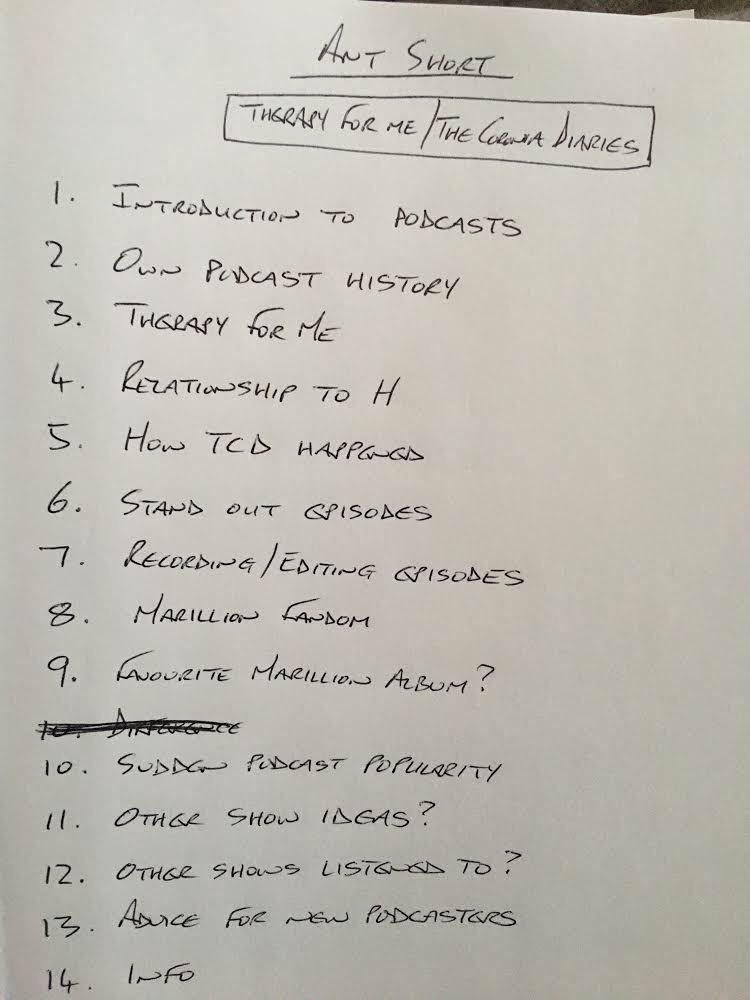 ANT SHORT
THERAPY FOR ME/THE CORONA DIARIES
1. INTRODUCTION TO PODCASTS
2. OWN PODCAST HISTORY
3. THERAPY FOR ME
4. RELATIONSHIP TO H
5. HOW TCD HAPPENED
6. STAND OUT EPISODES
7. RECORDING/EDITING EPISODES
8. MARILLION FANDOM
9. FAVOURITE MARILLION ALBUM?
10. DIFFERENCE
10. SUDDEN PODCAST POPULARITY
11. OTHER SHOW IDEAS?
12. OTHER SHOWS LISTENED TO?
13. ADVICE FOR NEW PODCASTERS
14. INFO